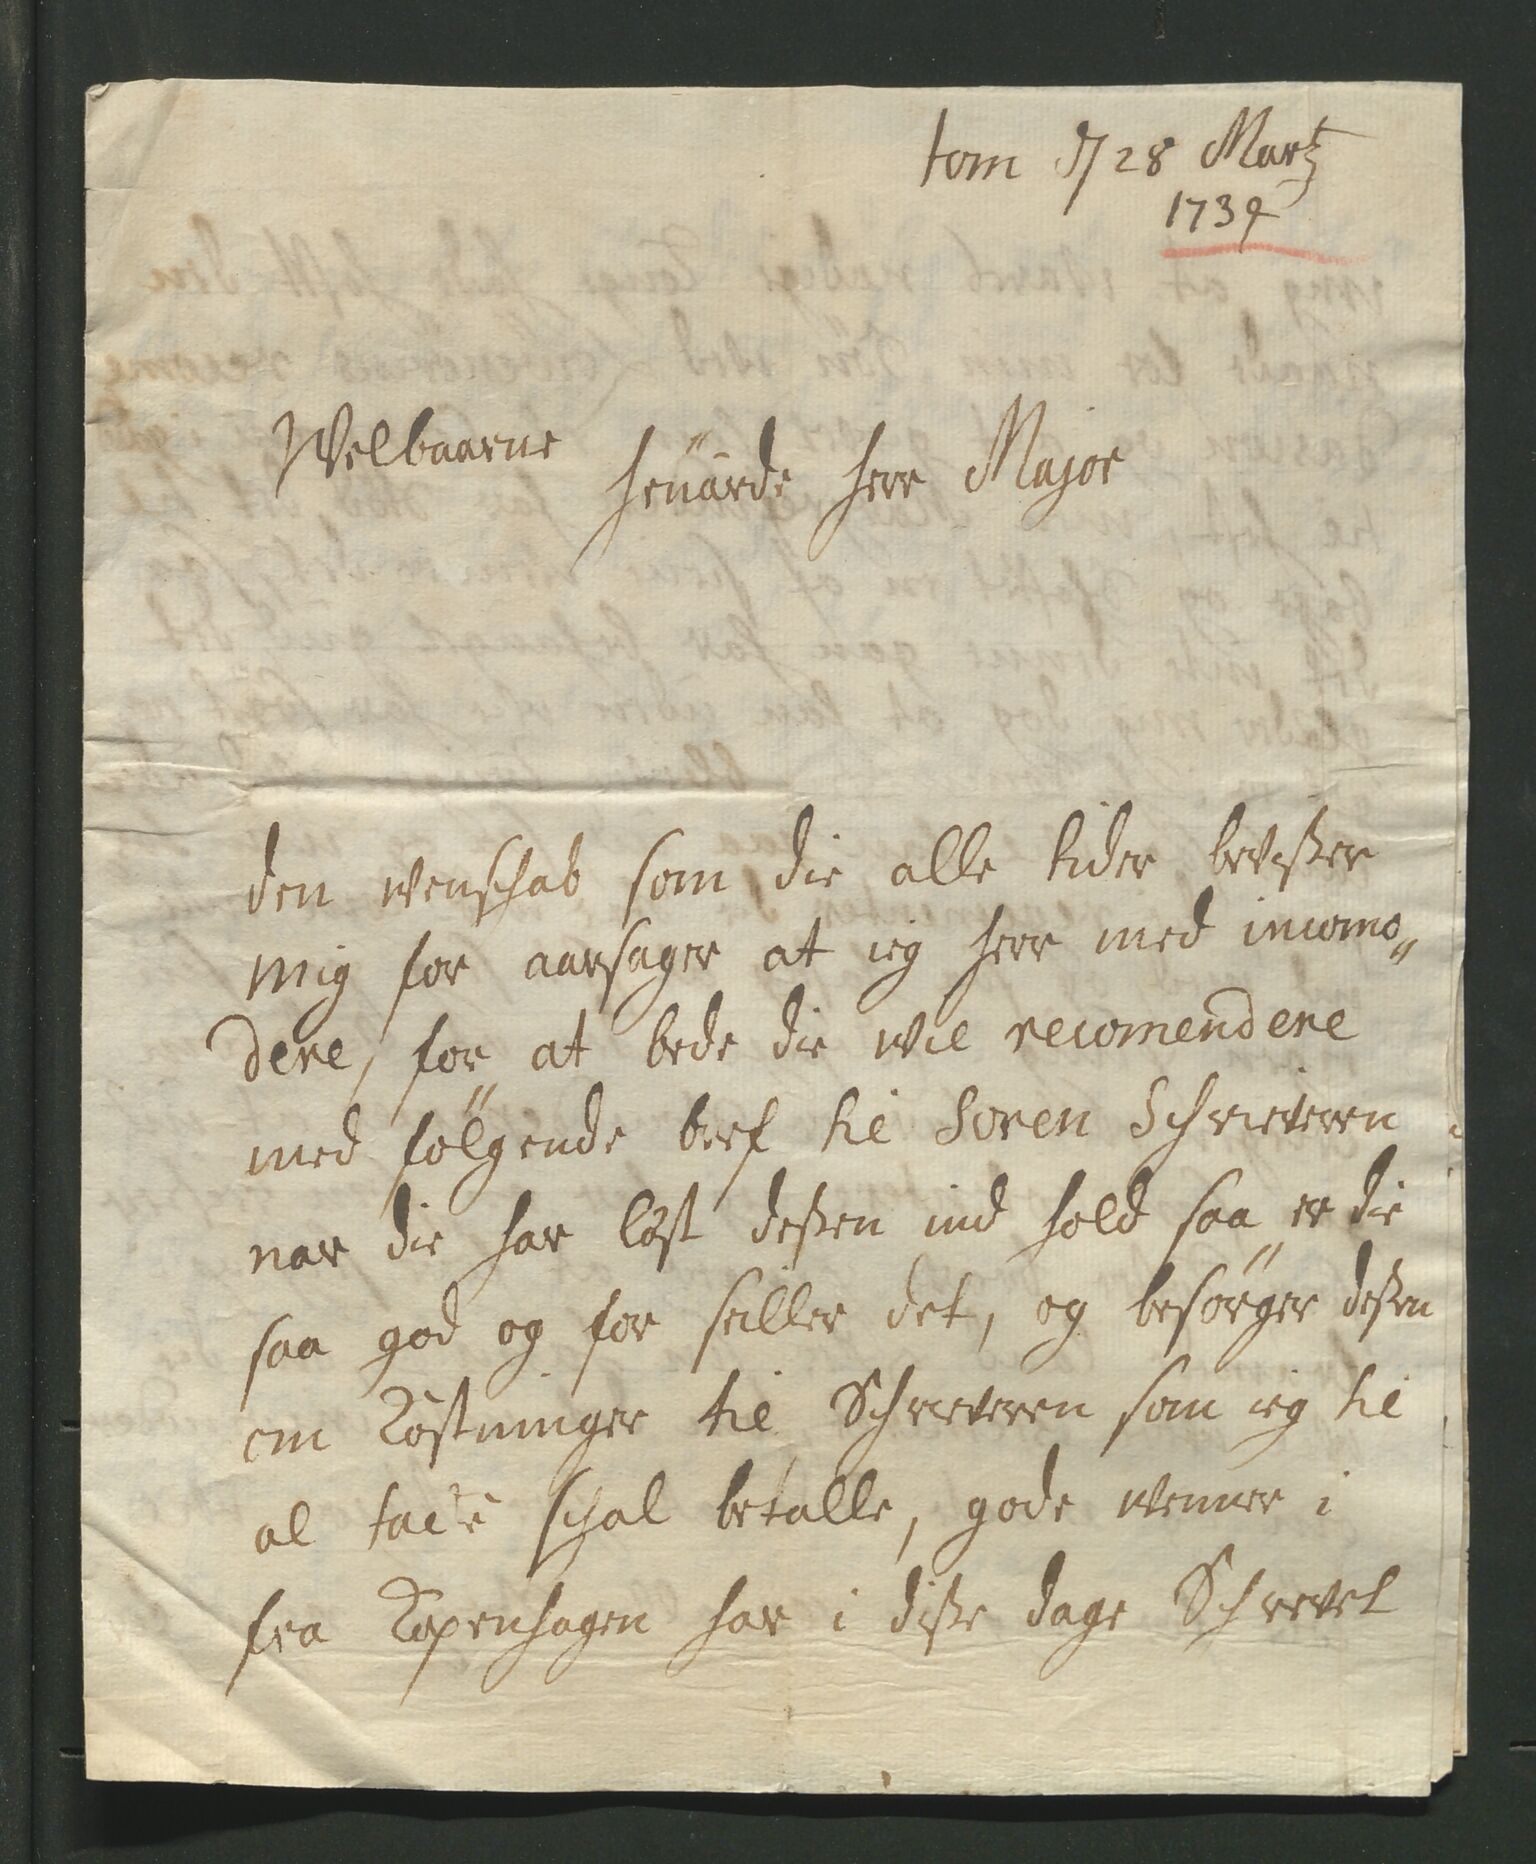 tom d 28 Martz
1739
Welbaarne
heuårde herr Major
den wenschab som die alle tider bevisser
mig for aarsager at ieg herr med incomo„
dere, for at bede die wil recomendere
med fölgende bref til Soren Schriewern
nar die har läst dessen ind hold saa er die
saa god og for seiller det, og besörger dessen
om kostninger til Schriewern som ieg til
al tack schal betalle, gode wenner i
fra Kopenhagen har i disse dage Schrevet